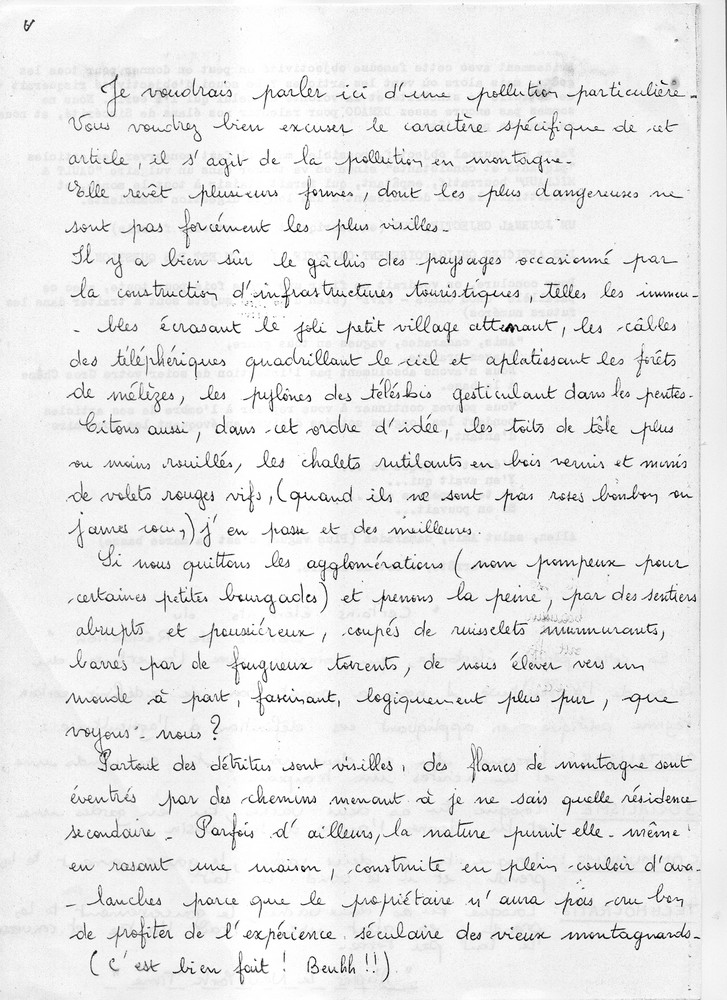 A
Je voudrais parler ici d'une pollution particulière.
Vous voudrez bien excuser le caractère spécifique de cet
article, il s'agit de la pollution en montagne.
Elle revêt plusieurs formes, dont les plus dangereuses ne
sont pas forcément les plus visibles.
Il y a bien sûr le gâchis des paysages occasionné par
la construction d'infrastructures touristiques, telles les immeu-
-bles écrasant le joli petit village attenant, les câbles
des téléphériques quadrillant le ciel et aplatissant les forêts
de mélèzes, les pylônes des téléskis gesticulant dans les pentes.
Citons aussi, dans cet ordre d'idée, les toits de tôle plus
ou moins rouillés, les chalets rutilants en bois vernis et munis
de volets rouges vifs, (quand ils ne sont pas roses bonbon ou
jaunes cocu,) j'en passe et des meilleures.
Si nous quittons les agglomérations (nom pompeux pour
certaines petites bourgades) et prenons la peine, par des sentiers
abrupts et poussiéreux, coupés de ruisselets murmurants,
barrés par de fougueux torrents, de nous élever vers un
monde à part, fascinant, logiquement plus pur, que
voyons-nous ?
Partout des détritus sont visibles, des flancs de montagne sont
éventrés par des chemins menant à je ne sais quelle résidence
secondaire. Parfois d'ailleurs, la nature punit elle-même
en rasant une maison, construite en plein couloir d'ava-
-lanches parce que le propriétaire n'aura pas cru bon
de profiter de l'expérience séculaire des vieux montagnards.
(C'est bien fait ! Beuhh !!).